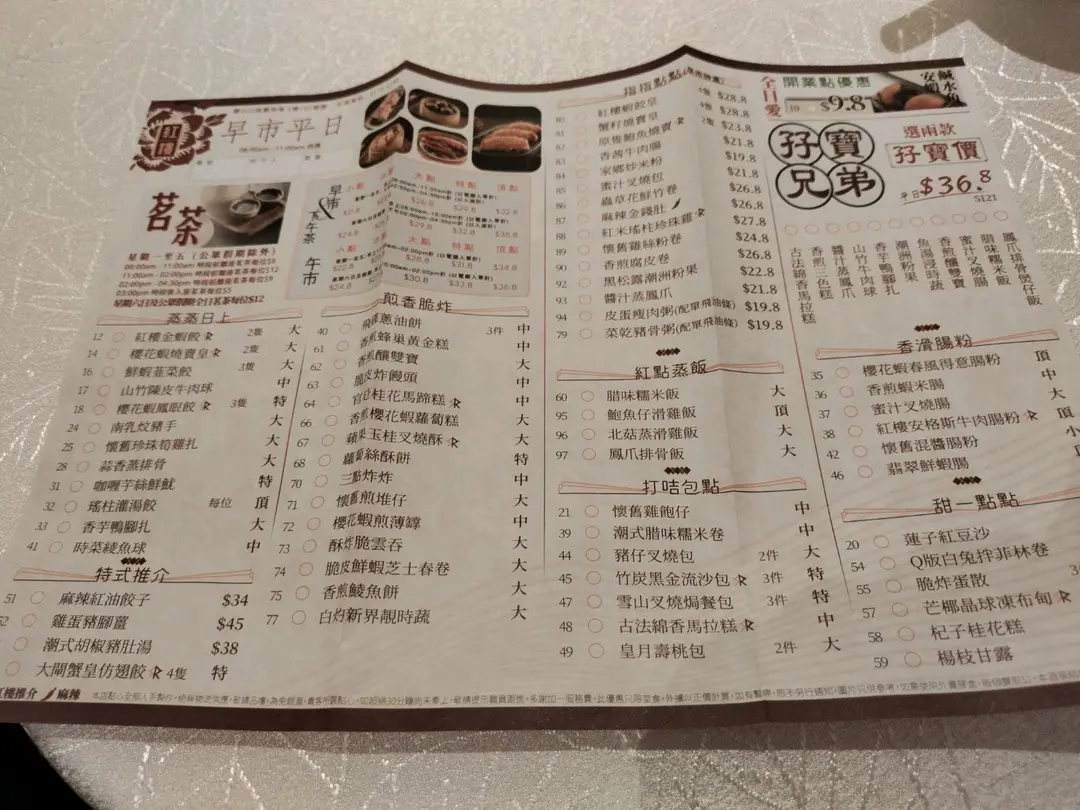 紅樓
早市平日
茗茶
星期一至五 (公眾假期除外)
早市 & 下午茶
午市
小點
大點
特點
頂點
蒸蒸日上
12 紅樓金蝦餃 2隻 大
14 櫻花蝦燒賣皇 2隻 大
16 鮮蝦韮菜餃 3隻 大
17 山竹陳皮牛肉球 中
18 櫻花蝦鳳眼餃 3隻 特
24 南乳炆豬手 大
25 懷舊珍珠筍雞扎 大
28 蒜香蒸排骨 大
31 咖喱芋絲鮮魷 特
32 瑤柱灌湯餃 每位 頂
33 香芋鴨腳扎 大
41 時菜綾魚球 中
特式推介
51 麻辣紅油餃子 $34
52 雞蛋豬腳薑 $45
潮式胡椒豬肚湯 $38
大閘蟹皇仿翅餃 4隻 特
煎香脆炸
40 蔥油餅 3件 中
61 香煎蜂巢黃金糕 中
62 香煎釀雙寶 中
63 脆皮炸饅頭 中
64 桂花馬蹄糕 中
66 香煎櫻花蝦蘿蔔糕 大
67 蘋果玉桂叉燒酥 大
68 蘿蔔絲酥餅 特
70 三點炸炸 中
71 懷舊煎堆仔 大
72 櫻花蝦煎薄罉 大
73 酥炸脆雲吞 大
74 脆皮鮮蝦芝士春卷 大
75 香煎鯪魚餅 大
77 白灼新界靚時蔬 大
指指點點
80 紅樓蝦餃皇 $28.8
81 蟹籽燒賣皇 $28.8
82 原隻鮑魚燒賣 $23.8
83 香茜牛肉腸 $21.8
84 家鄉炒米粉 $19.8
85 蜜汁叉燒包 $21.8
86 蟲草花鮮竹卷 $26.8
87 麻辣金錢肚 $26.8
88 紅米瑤柱珍珠雞 $27.8
89 懷舊雞絲粉卷 $24.8
90 香煎腐皮卷 $26.8
92 黑松露潮洲粉果 $22.8
93 醬汁蒸鳳爪 $21.8
94 皮蛋瘦肉粥(配單飛油條) $19.8
79 菜乾豬骨粥(配單飛油條) $19.8
紅點蒸飯
60 腊味米飯 大
95 鮑魚仔滑雞飯 頂
96 北菇蒸滑雞飯 大
97 鳳爪排骨飯 大
打咭包點
21 懷舊雞飽仔 中
39 潮式腊味糯米卷 中
44 豬仔叉燒包 2件 大
45 竹炭黑金流沙包 3件 特
47 雪山叉燒焗餐包 3件 特
48 古法綿香馬拉糕 中
49 皇月壽桃包 2件 大
全日愛
開業點優惠
$9.8
孖寶兄弟
選兩款
孖寶價
平日 $36.8
S121
鳳爪排骨煲仔飯
腊味糯米飯
蜜汁叉燒腸
香煎釀雙寶
魚湯浸時蔬
潮洲粉果
香芋鴨腳扎
山竹牛肉球
醬汁蒸鳳爪
香煎三色糕
古法綿香馬拉糕
香滑腸粉
35 櫻花蝦春風得意腸粉 頂
36 香煎蝦米腸 中
37 蜜汁叉燒腸 大
38 紅樓安格斯牛肉腸粉 頂
42 懷舊混醬腸粉 小
46 翡翠鮮蝦腸
甜一點點
20 蓮子紅豆沙
54 Q版白兔拌菲林卷
55 脆炸蛋散
57 芒椰晶球凍布甸
58 杞子桂花糕
59 楊枝甘露
紅樓推介 麻辣